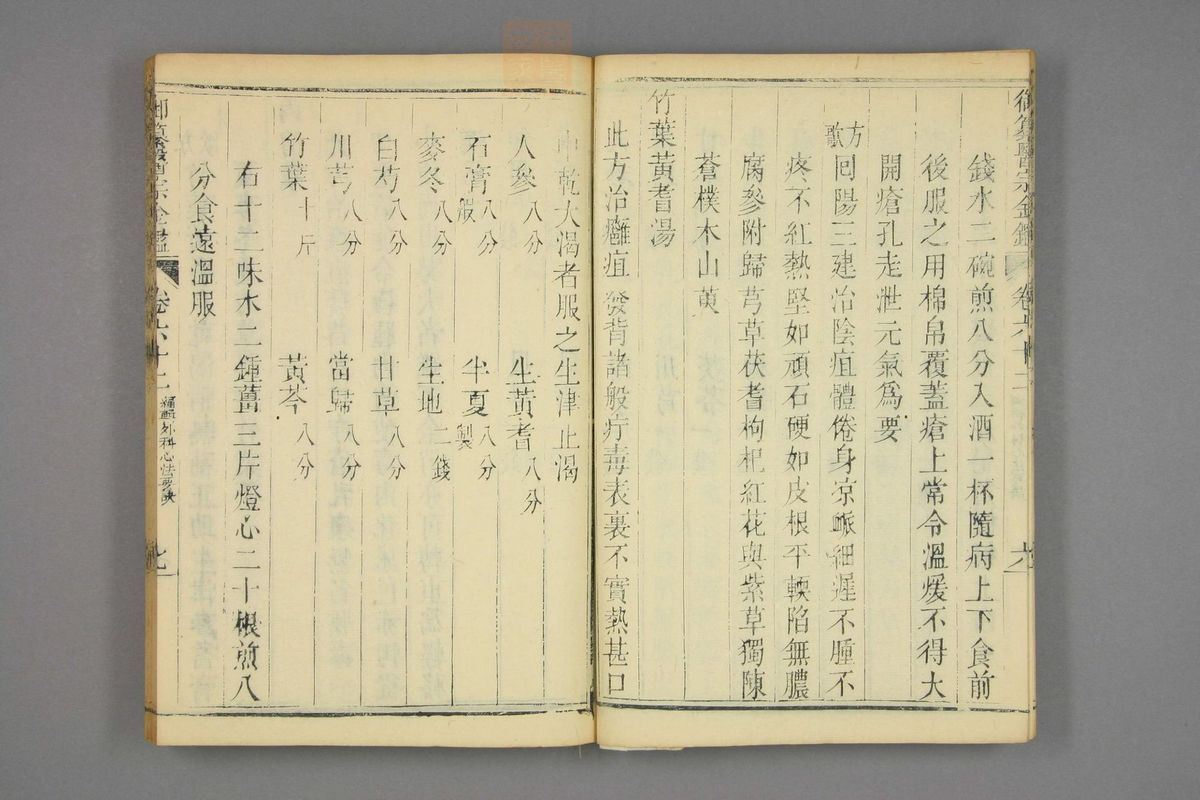 御纂醫宗金鑑 卷六十二
錢水二碗煎八分入酒一杯隨病上下食前
後服之用棉帛覆蓋瘡上常令溫煖不得大
開瘡孔走泄元氣爲要
方歌 回陽三建治陰疽體倦身凉脈細遲不腫不
疼不紅熱堅如頑石硬如皮根平輭陷無膿
腐參附歸芎草茯耆枸杞紅花與紫草獨陳
蒼樸木山萸
竹葉黃耆湯
此方治癰疽發背諸般疔毒表裏不實熱甚口
中乾大渴者服之生津止渴
人參八分 生黃耆八分
石膏煅八分 半夏製八分
麥冬八分 生地二錢
白芍八分 甘草八分
川芎八分 當歸八分
竹葉十斤 黃芩八分
右十二味水二鍾薑三片燈心二十根煎八
分食遠溫服
御纂醫宗金鑑 卷六十二 編輯外科心法要訣